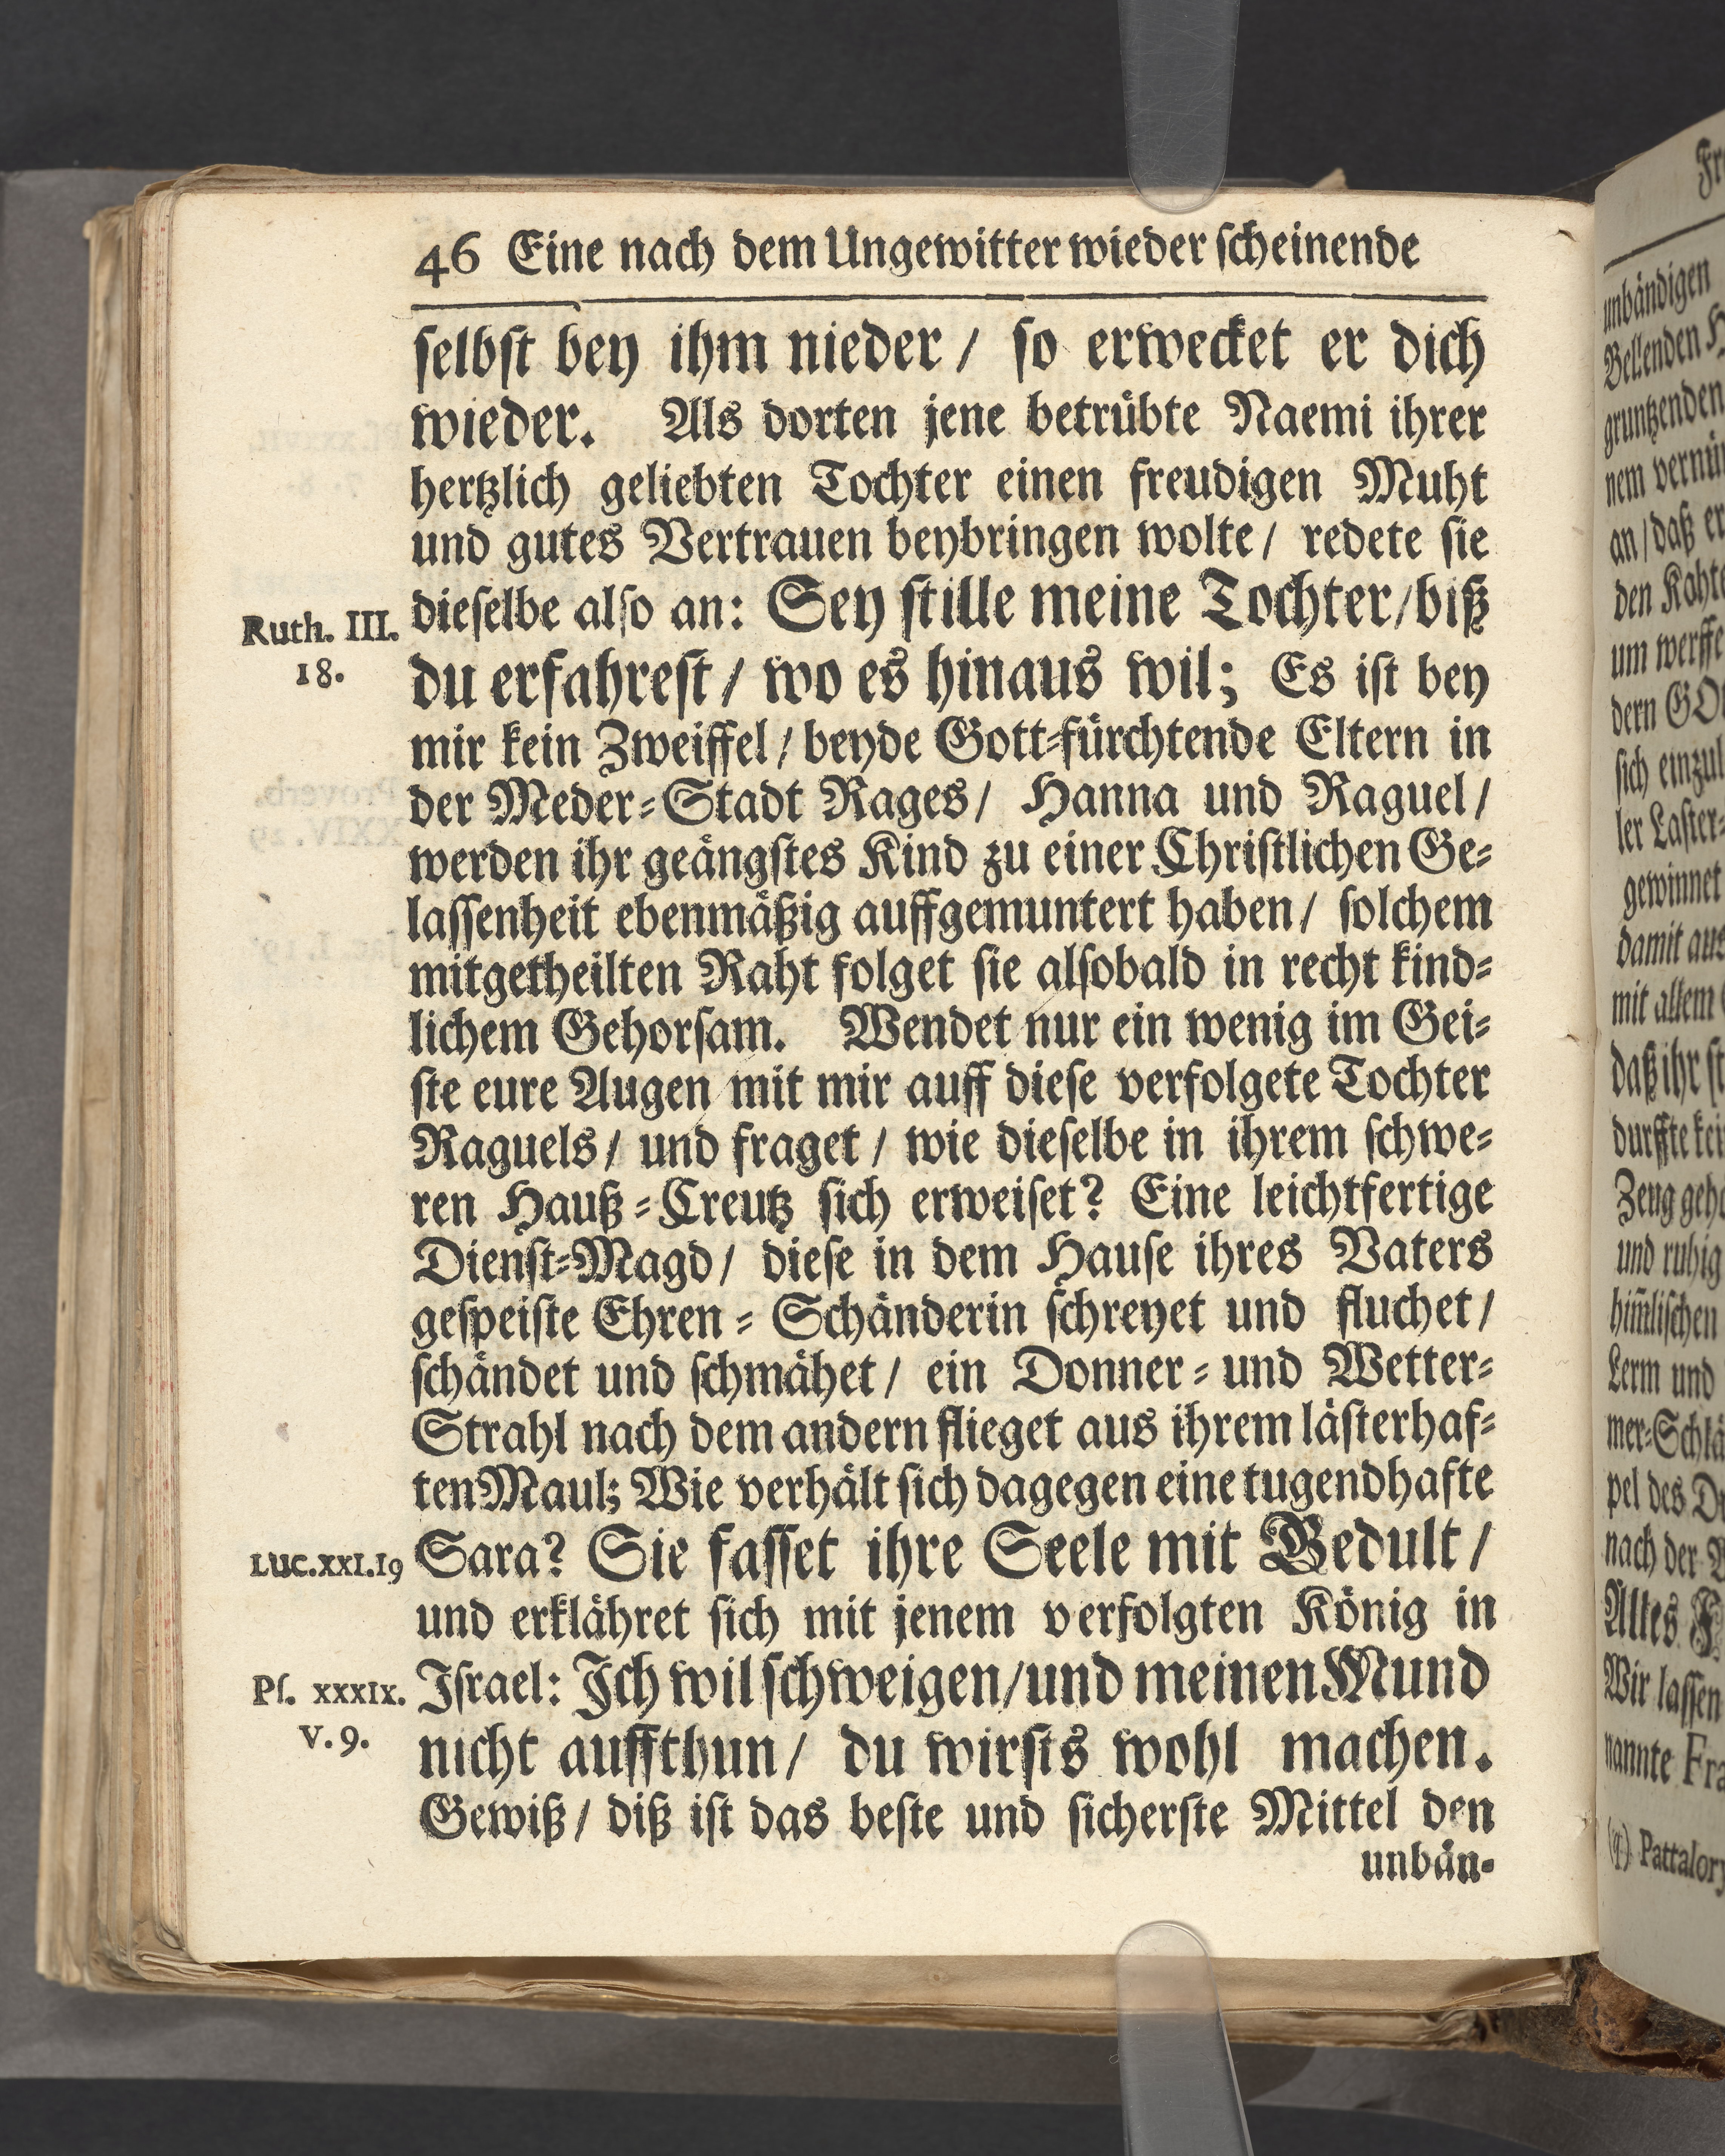 46 Eine nach dem Ungewitter wieder scheinende
selbst bey ihm nieder / so erwecket er dich
wieder. Als dorten jene betrübte Naemi ihrer
hertzlich geliebten Tochter einen freudigen Muht
und gutes Vertrauen beybringen wolte / redete sie
Ruth. III. 18.
dieselbe also an: Sey stille meine Tochter / biß
du erfahrest / wo es hinaus wil; Es ist bey
mir kein Zweiffel / beyde Gott-fürchtende Eltern in
der Meder-Stadt Rages / Hanna und Raguel /
werden ihr geängstes Kind zu einer Christlichen Ge-
lassenheit ebenmäßig auffgemuntert haben / solchem
mitgetheilten Raht folget sie alsobald in recht kind-
lichem Gehorsam. Wendet nur ein wenig im Gei-
ste eure Augen mit mir auff diese verfolgete Tochter
Raguels / und fraget / wie dieselbe in ihrem schwe-
ren Hauß-Creutz sich erweiset? Eine leichtfertige
Dienst-Magd / diese in dem Hause ihres Vaters
gespeiste Ehren-Schänderin schreyet und fluchet /
schändet und schmähet / ein Donner- und Wetter-
Strahl nach dem andern flieget aus ihrem lästerhaf-
ten Maul; Wie verhält sich dagegen eine tugendhafte
Luc. XXI. 19
Sara? Sie fasset ihre Seele mit Gedult /
und erklähret sich mit jenem verfolgten König in
Ps. XXXIX. v. 9.
Israel: Ich wil schweigen / und meinen Mund
nicht auffthun / du wirsts wohl machen.
Gewiß / diß ist das beste und sicherste Mittel den
unbän-
unbändigen
Bellenden
gruntzenden
nem
an / daß er
den
um
dern
sich
ler Laster-
gewinnet
damit aus
mit allem
daß ihr
durffte
Zeug
und ruhig
him̃lischen
Lerm und
mer-
pel des
nach der
Altes
Wir lassen
nannte